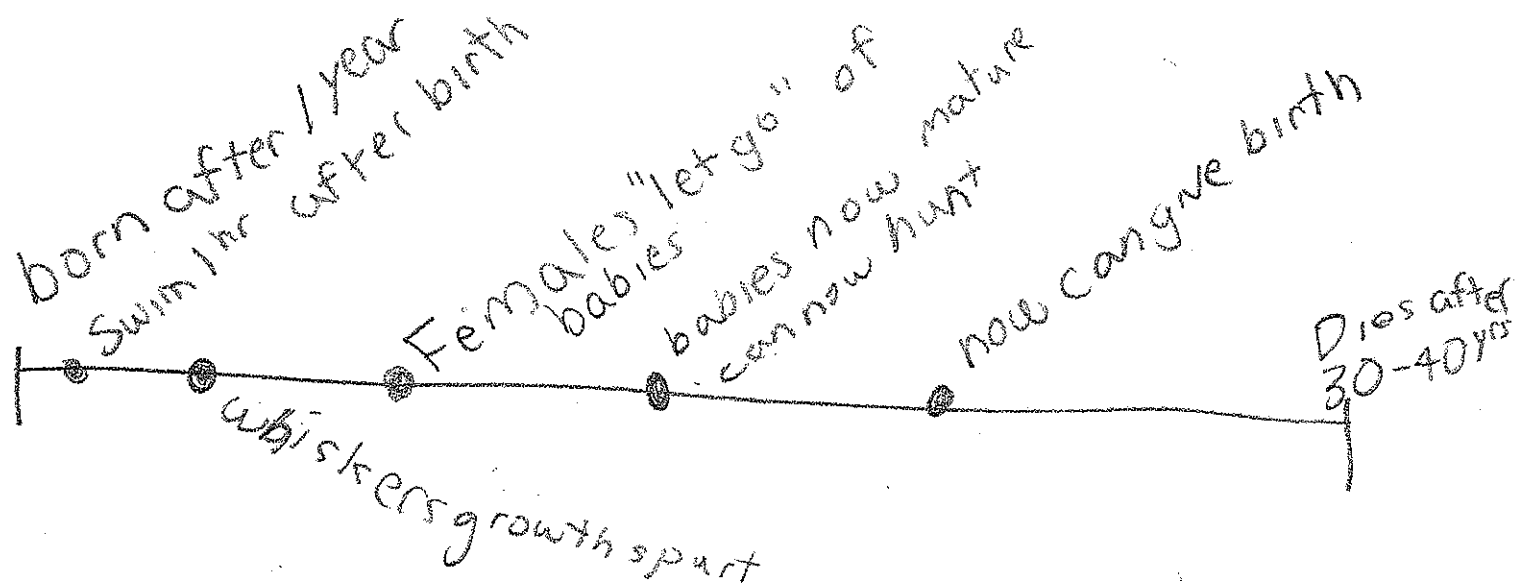 born after 1 year
Swim 1 hr after birth
whiskers growth spurt
Females "let go" of
babies
babies now mature
can now hunt
now can give birth
Dies after
30-40 yrs